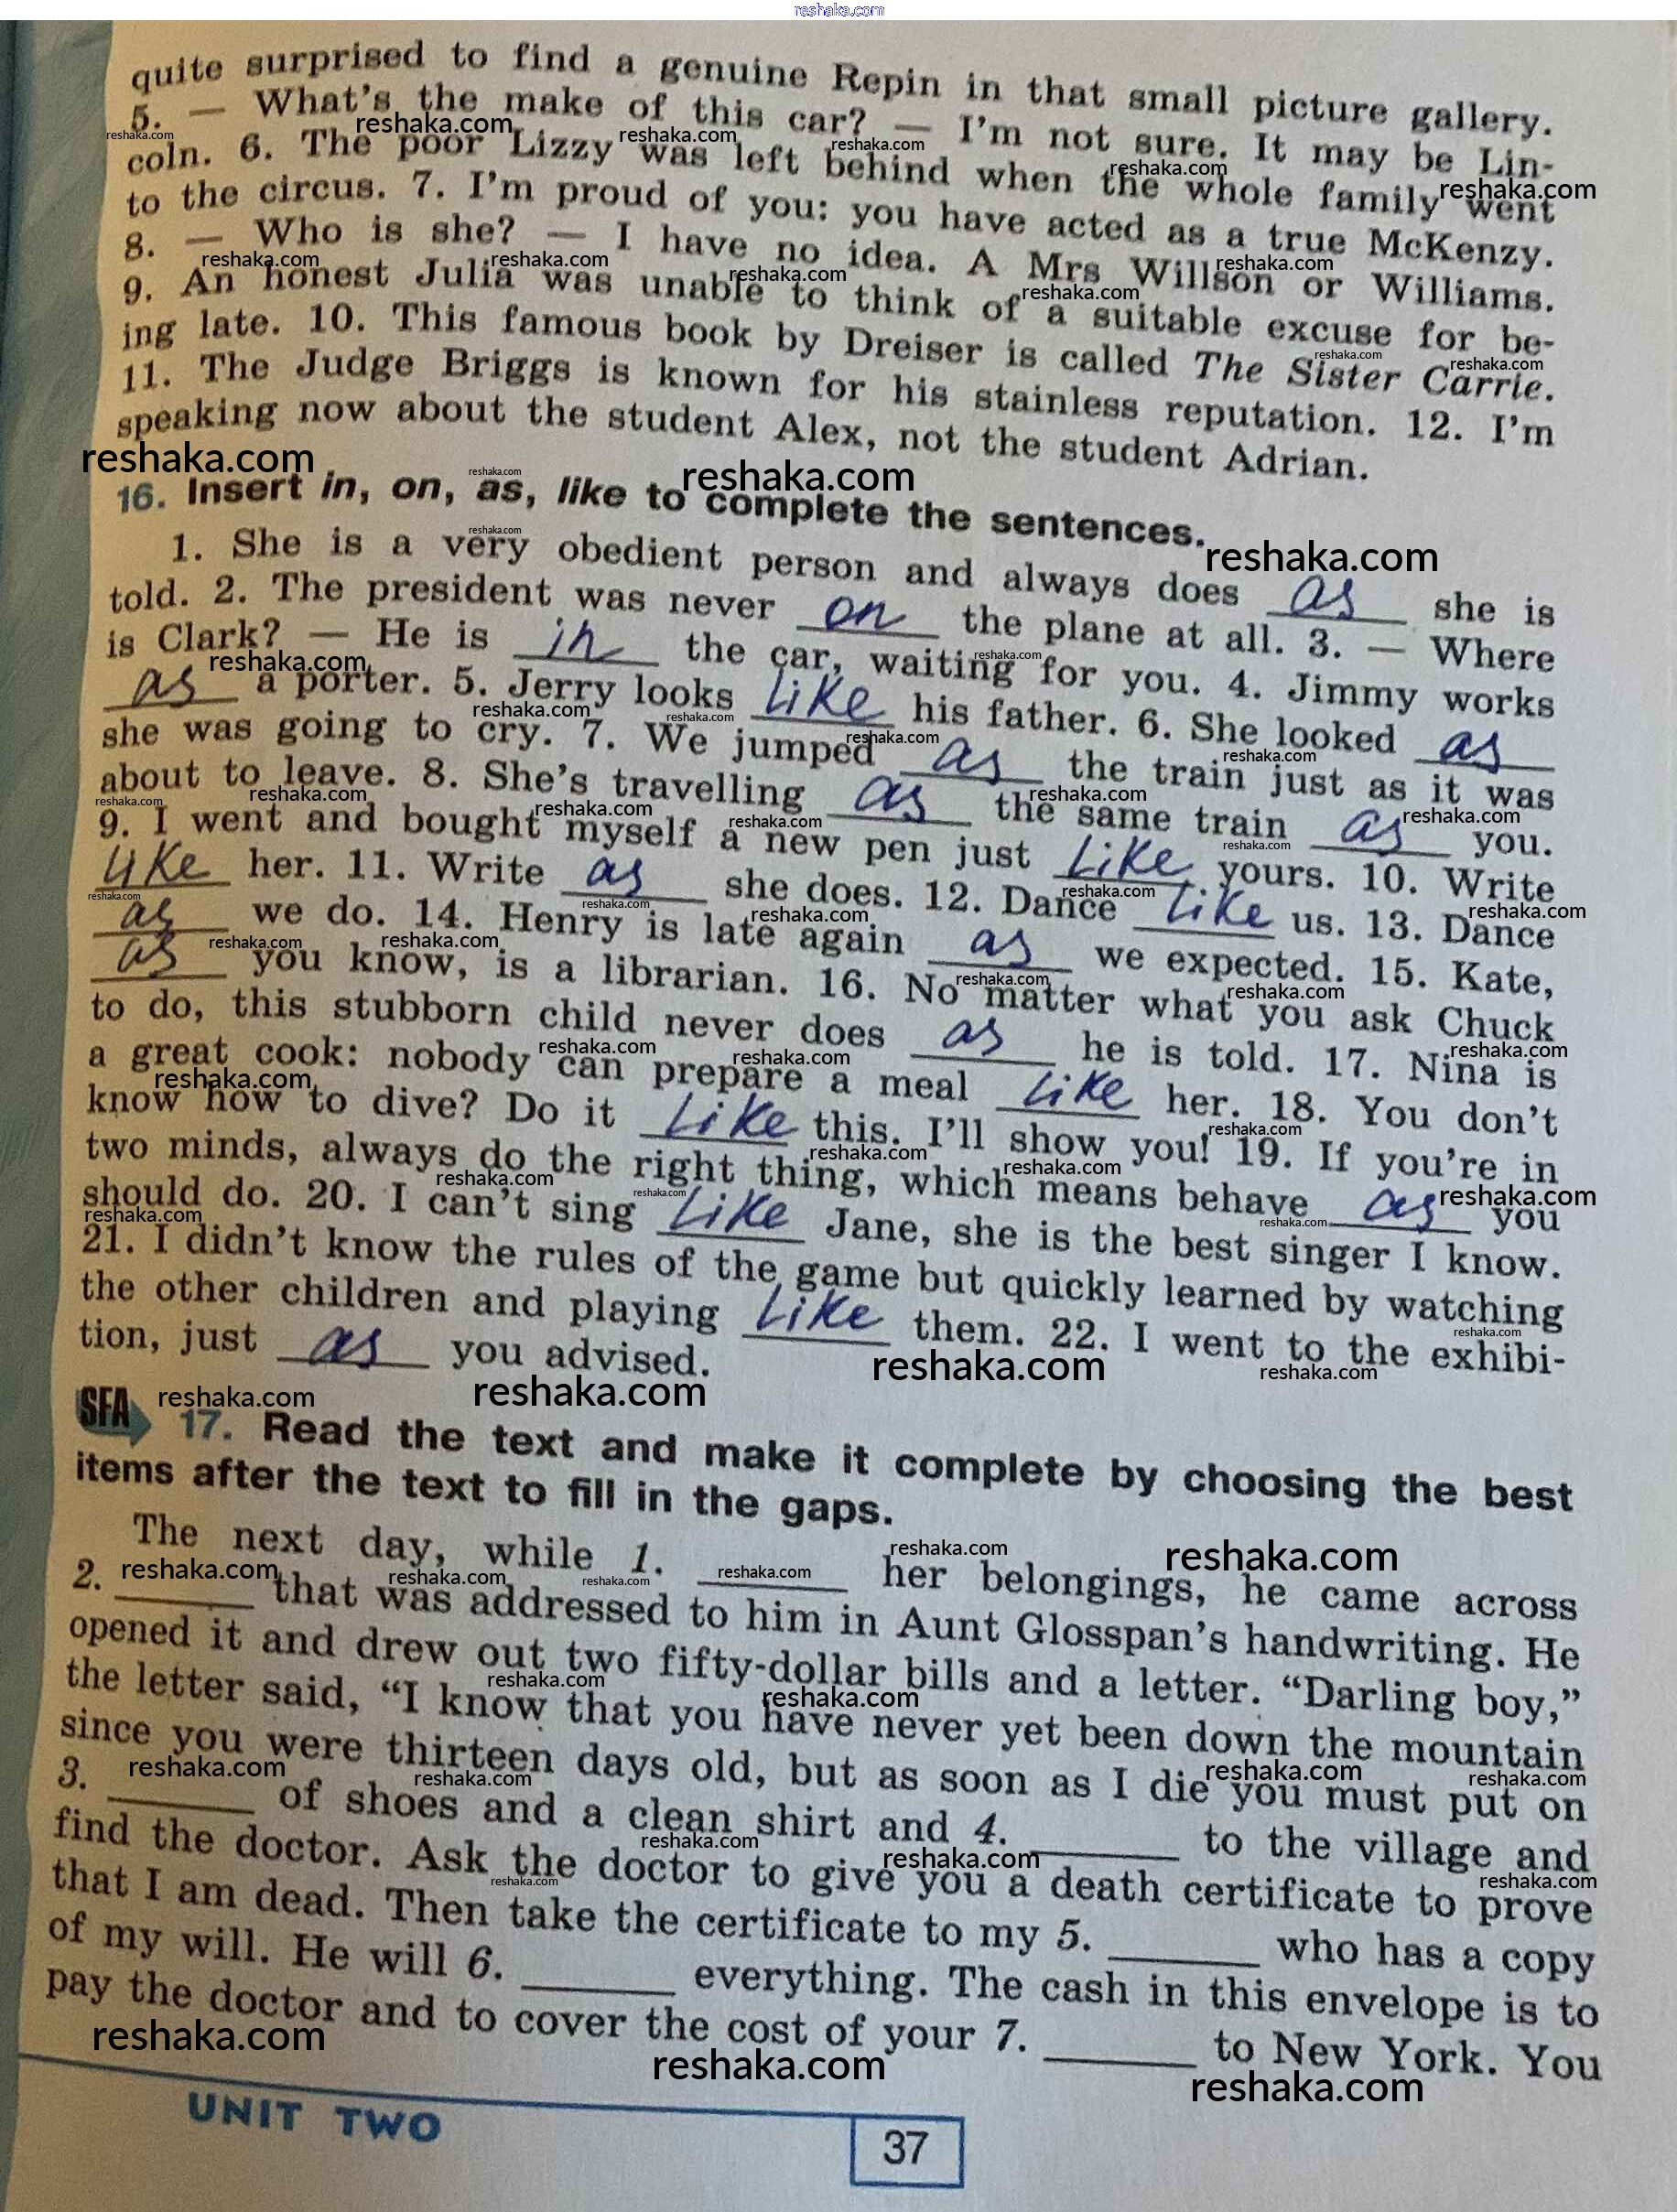 reshaka.com
quite surprised to find a genuine Repin in that small picture gallery.
5. — What's the make of this car? — I'm not sure. It may be Lin-
coln. 6. The poor Lizzy was left behind when the whole family went
to the circus. 7. I'm proud of you: you have acted as a true McKenzy.
8. — Who is she? — I have no idea. A Mrs Willson or Williams.
9. An honest Julia was unable to think of a suitable excuse for be-
ing late. 10. This famous book by Dreiser is called The Sister Carrie.
11. The Judge Briggs is known for his stainless reputation. 12. I'm
speaking now about the student Alex, not the student Adrian.
16. Insert in, on, as, like to complete the sentences.
1. She is a very obedient person and always does as she is
told. 2. The president was never on the plane at all. 3. — Where
is Clark? — He is in the car, waiting for you. 4. Jimmy works
as a porter. 5. Jerry looks like his father. 6. She looked as
she was going to cry. 7. We jumped as the train just as it was
about to leave. 8. She's travelling as the same train as you.
9. I went and bought myself a new pen just like yours. 10. Write
like her. 11. Write as she does. 12. Dance like us. 13. Dance
as we do. 14. Henry is late again as we expected. 15. Kate,
as you know, is a librarian. 16. No matter what you ask Chuck
to do, this stubborn child never does as he is told. 17. Nina is
a great cook: nobody can prepare a meal like her. 18. You don't
know how to dive? Do it like this. I'll show you! 19. If you're in
two minds, always do the right thing, which means behave as you
should do. 20. I can't sing like Jane, she is the best singer I know.
21. I didn't know the rules of the game but quickly learned by watching
the other children and playing like them. 22. I went to the exhibi-
tion, just as you advised.
SFA 17. Read the text and make it complete by choosing the best
items after the text to fill in the gaps.
The next day, while 1. ______ her belongings, he came across
2. ______ that was addressed to him in Aunt Glosspan's handwriting. He
opened it and drew out two fifty-dollar bills and a letter. "Darling boy,"
the letter said, "I know that you have never yet been down the mountain
since you were thirteen days old, but as soon as I die you must put on
3. ______ of shoes and a clean shirt and 4. ______ to the village and
find the doctor. Ask the doctor to give you a death certificate to prove
that I am dead. Then take the certificate to my 5. ______ who has a copy
of my will. He will 6. ______ everything. The cash in this envelope is to
pay the doctor and to cover the cost of your 7. ______ to New York. You
UNIT TWO
37